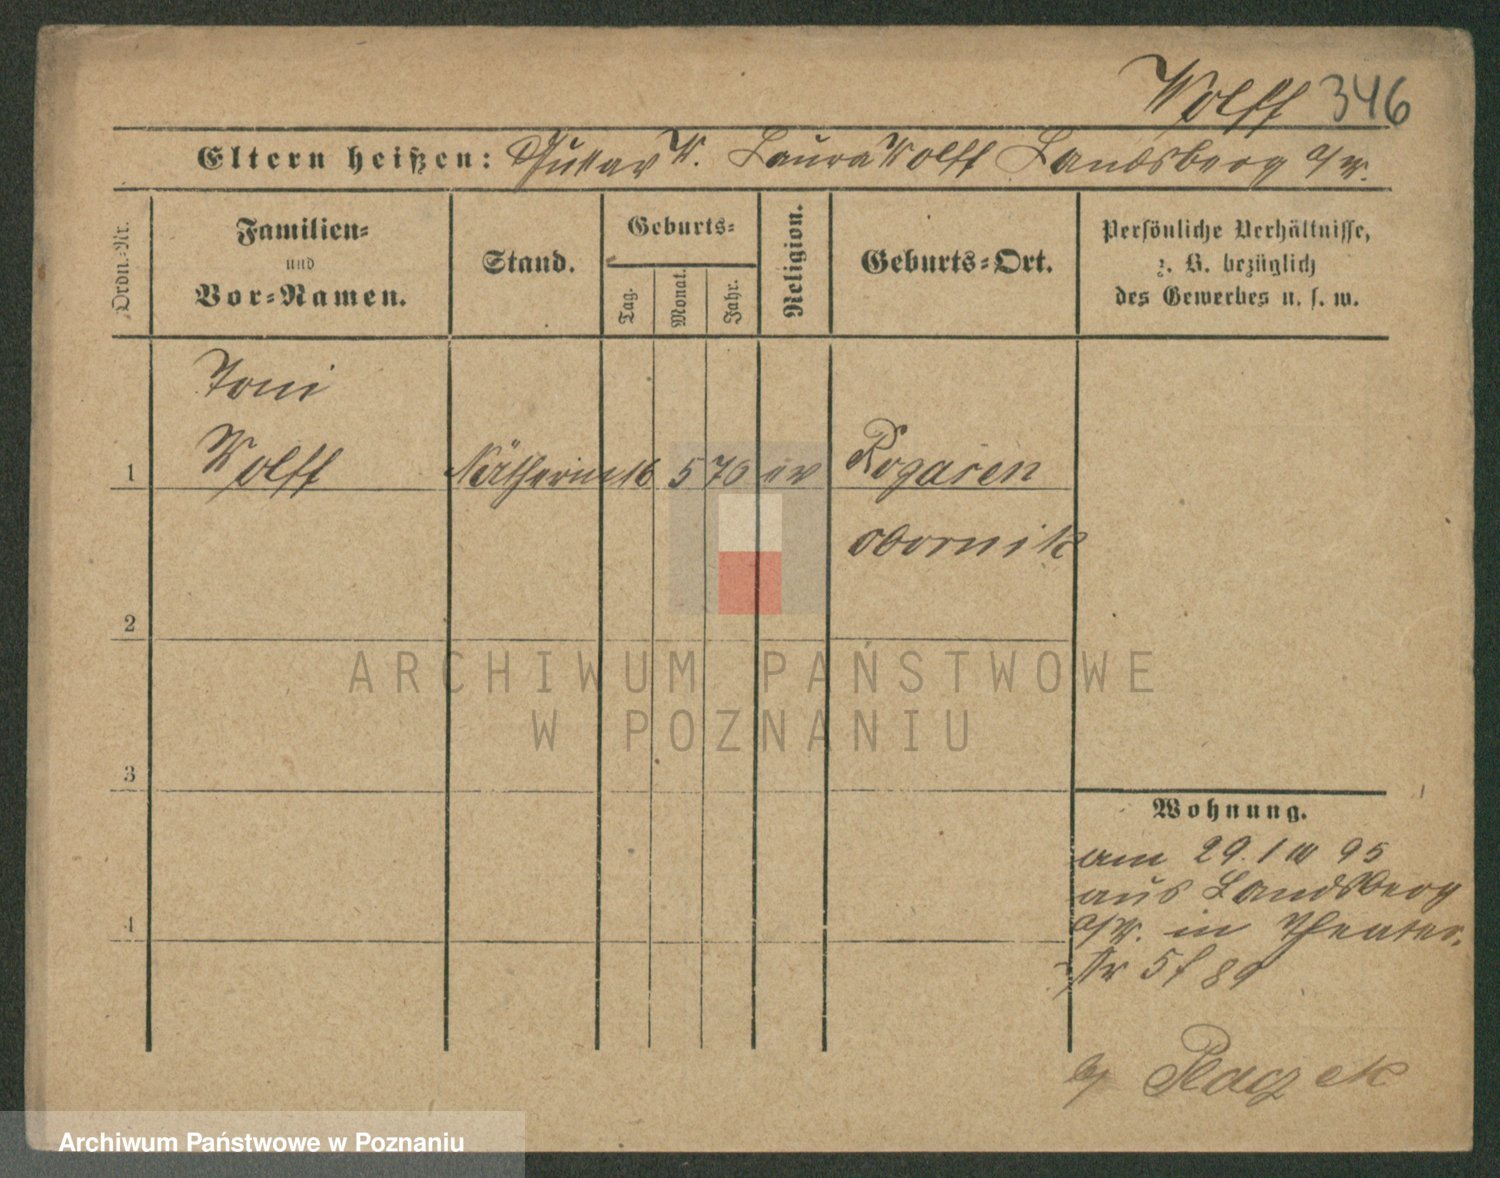 Wolff 346
Eltern heißen: Gustav W. Laura Wolff Landsberg a/W.
Ordn.-Nr.
Familien-
und
Vor-Namen.
Stand.
Geburts-
Tag.
Monat.
Jahr.
Religion.
Geburts-Ort.
Persönliche Verhältnisse,
z. B. bezüglich
des Gewerbes u. s. w.
Toni
1 Wolff Nätherin 16 5 76 ev Rogasen
Obornik
2
3
4
Wohnung.
am 29. 1 95
aus Landsberg
a/W. in Theater-
str 5
ARCHIWUM PAŃSTWOWE
W POZNANIU
Archiwum Państwowe w Poznaniu